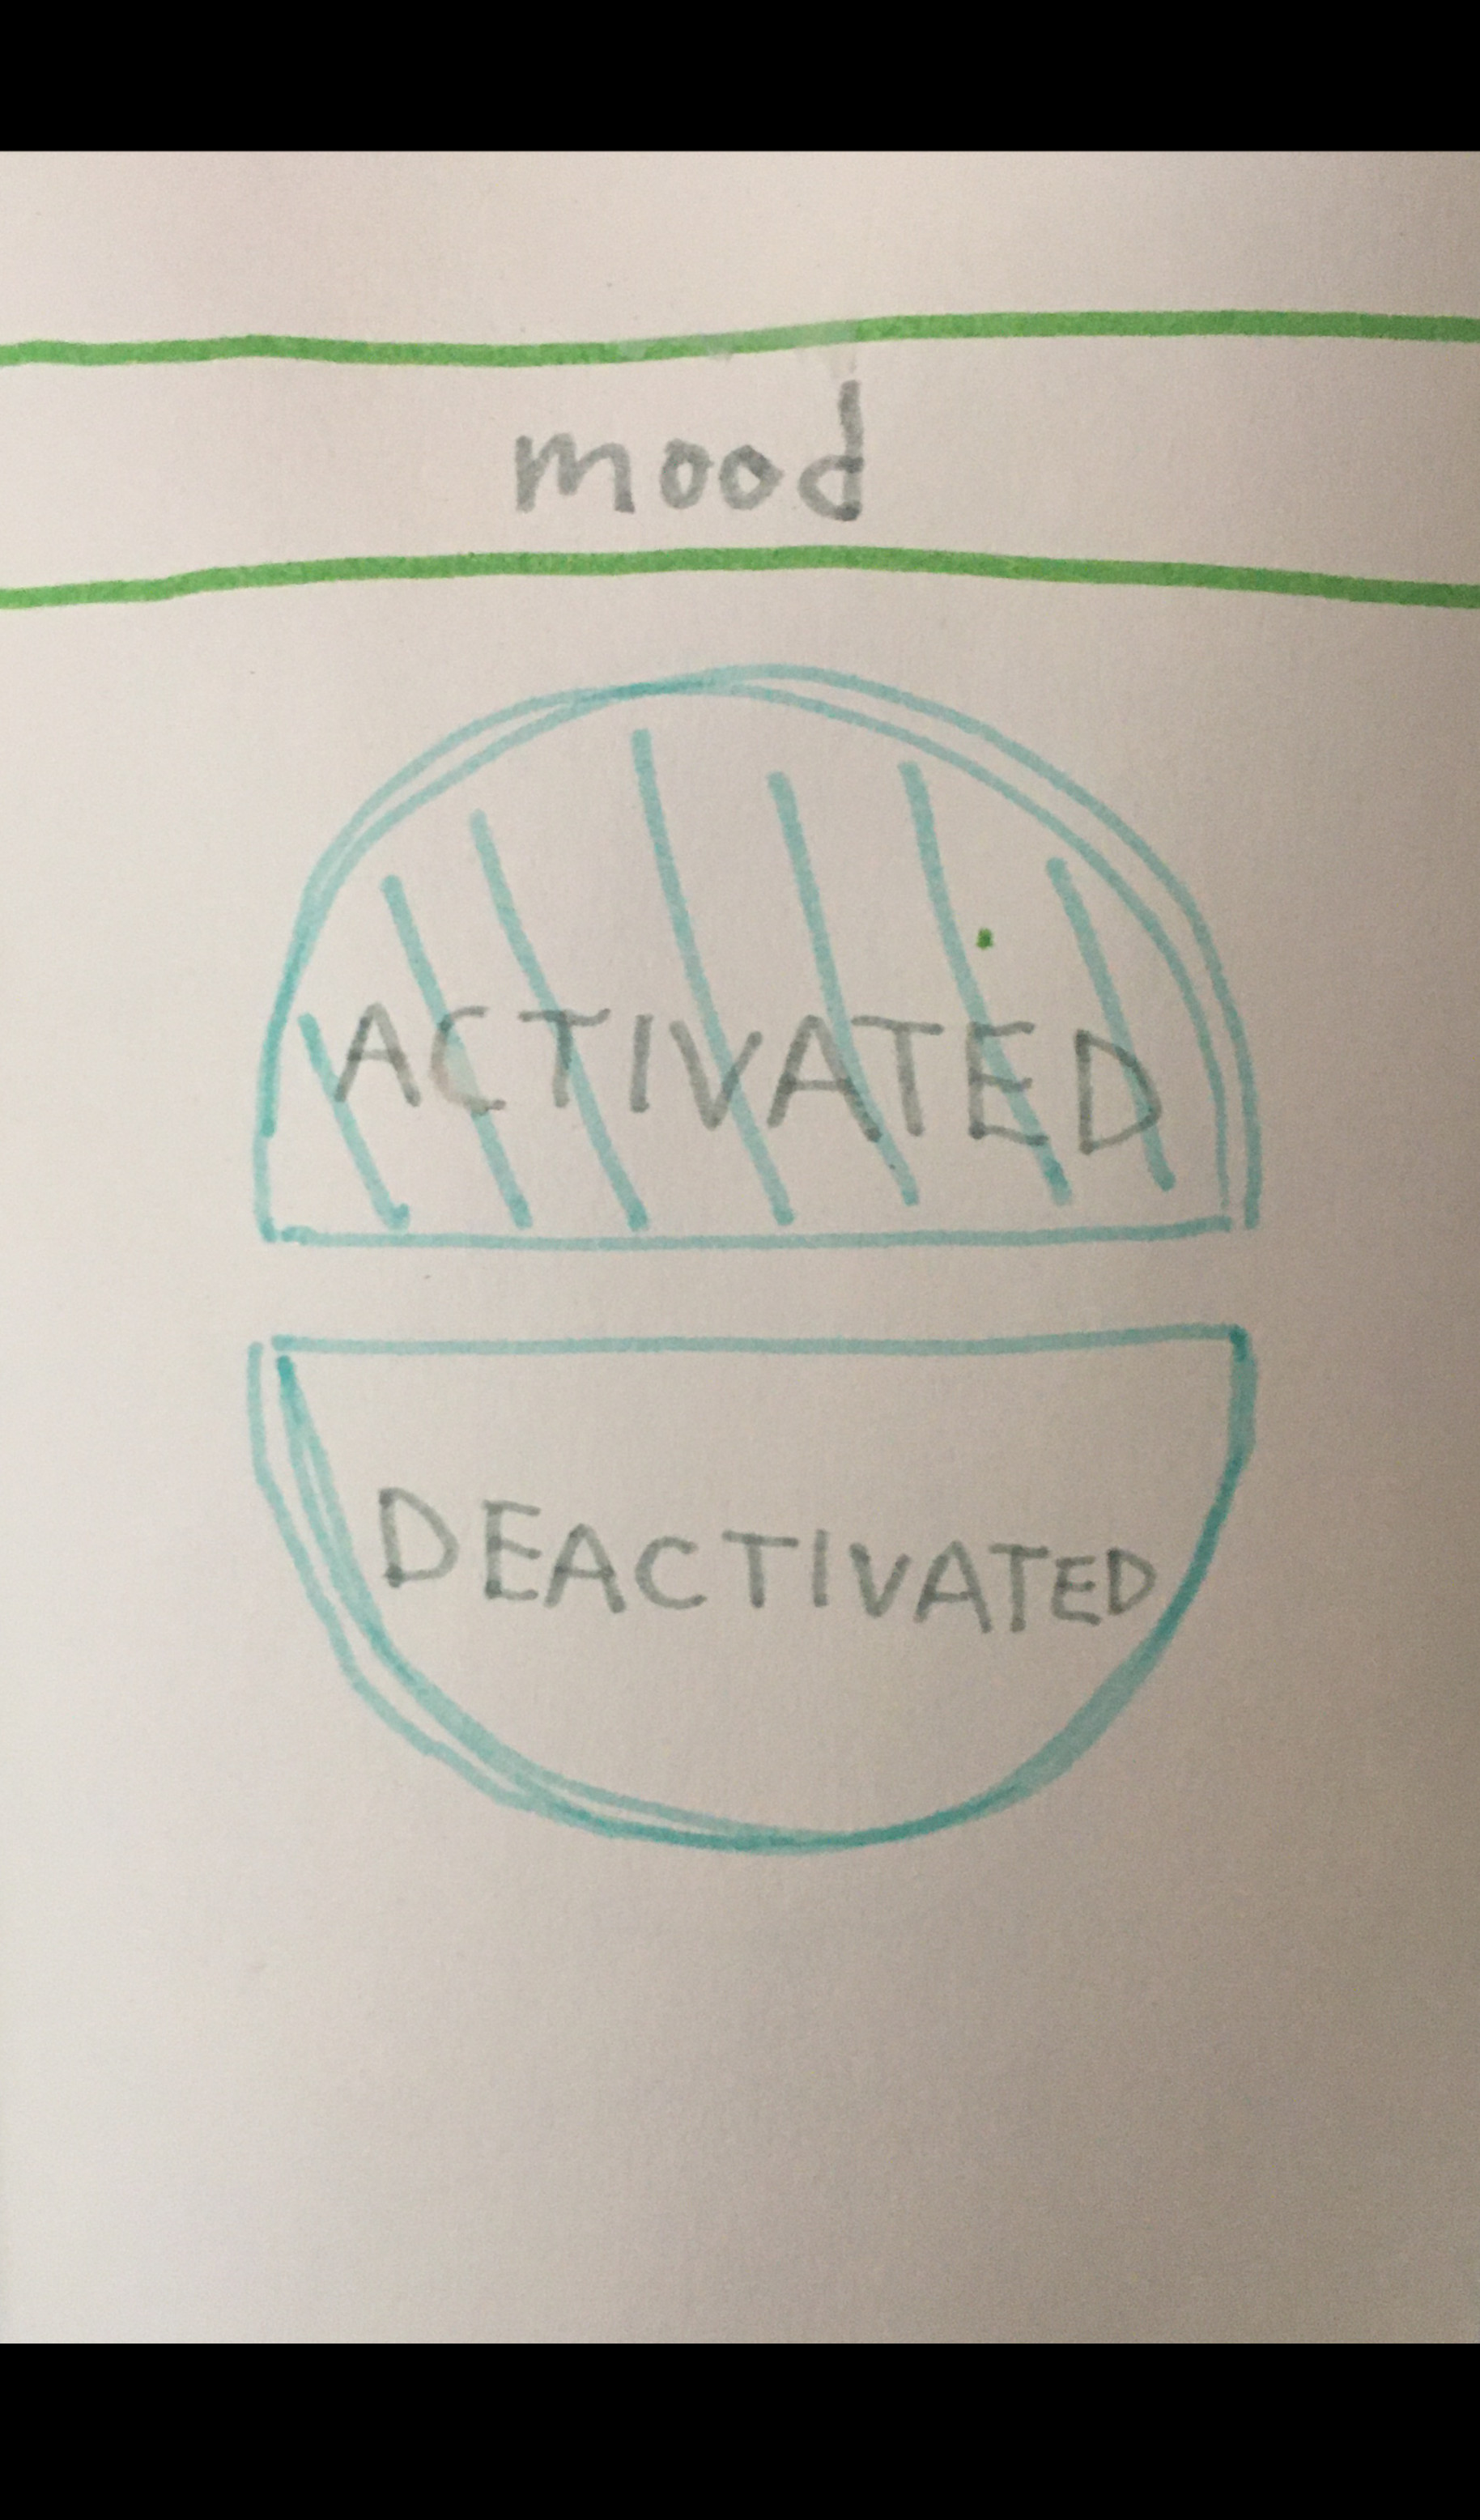 mood
ACTIVATED
DEACTIVATED